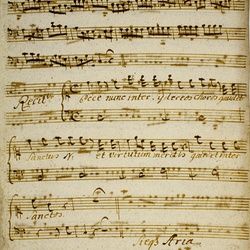 Recit:
Ecce nunc inter
Sanctus N. et virtutum meritis quasi inter
Sanctos.
Seqs Aria